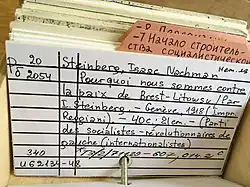 - Начало строитель-
ства социалистическо
P 20
2054
Steinberg, Isaac Nachman
Pourquoi nous sommes contre
la paix de Brest-Litowsk / Par
I. Steinberg. - Genève, 1918 (Impr.
Reggiani). - 40c. : 21cm. - (Parti
des socialistes-révolutionnaires de
gauche (internationalistes)
340
U 62134-48